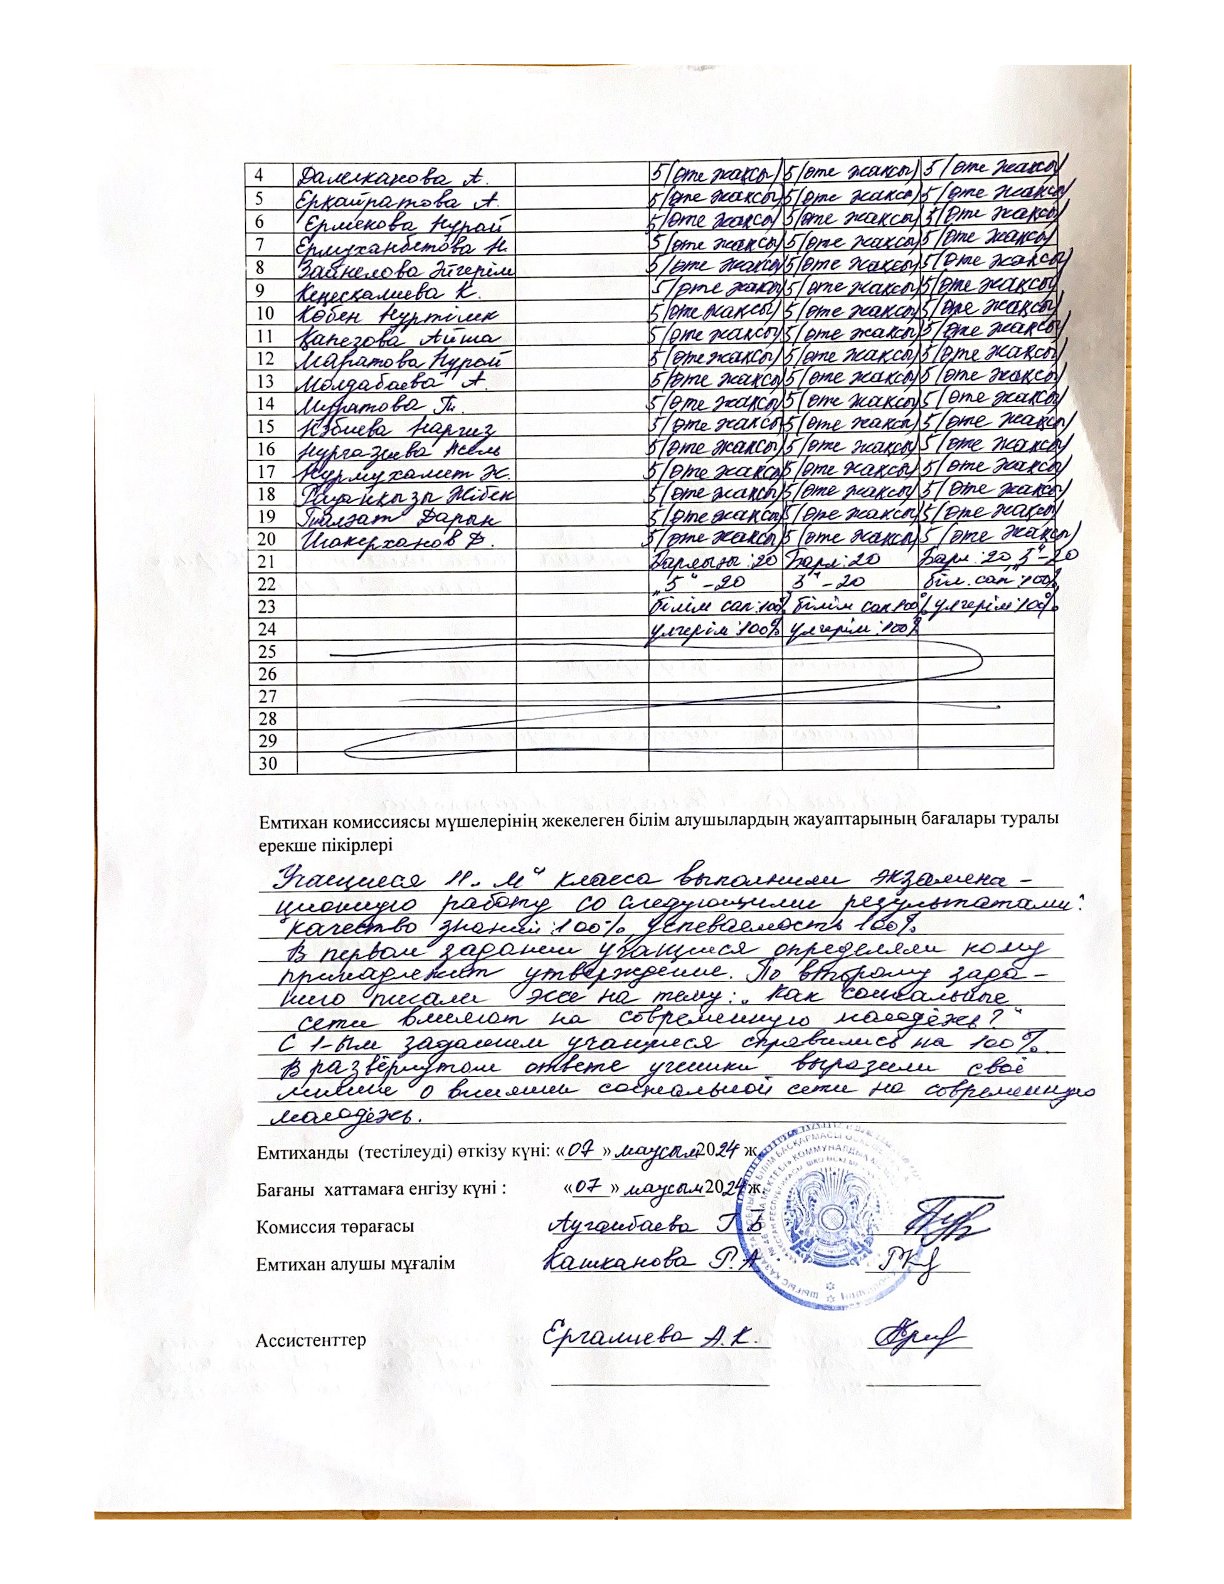 4 Далелханова А. 5 (өте жақсы) 5 (өте жақсы) 5 (өте жақсы)
5 Ерқайратова А. 5 (өте жақсы) 5 (өте жақсы) 5 (өте жақсы)
6 Ермекова Нұрай 5 (өте жақсы) 5 (өте жақсы) 5 (өте жақсы)
7 Ермуханбетова Н 5 (өте жақсы) 5 (өте жақсы) 5 (өте жақсы)
8 Зайнелова Әйгерім 5 (өте жақсы) 5 (өте жақсы) 5 (өте жақсы)
9 Кеңесқалиева К. 5 (өте жақсы) 5 (өте жақсы) 5 (өте жақсы)
10 Көбен Нұртілек 5 (өте жақсы) 5 (өте жақсы) 5 (өте жақсы)
11 Қапезова Айша 5 (өте жақсы) 5 (өте жақсы) 5 (өте жақсы)
12 Маратова Нұрай 5 (өте жақсы) 5 (өте жақсы) 5 (өте жақсы)
13 Молдабаева А. 5 (өте жақсы) 5 (өте жақсы) 5 (өте жақсы)
14 Муратова Т. 5 (өте жақсы) 5 (өте жақсы) 5 (өте жақсы)
15 Нәбиева Наргиз 5 (өте жақсы) 5 (өте жақсы) 5 (өте жақсы)
16 Нургазиева Асель 5 (өте жақсы) 5 (өте жақсы) 5 (өте жақсы)
17 Нұрмұхамет Ж. 5 (өте жақсы) 5 (өте жақсы) 5 (өте жақсы)
18 Жібек 5 (өте жақсы) 5 (өте жақсы) 5 (өте жақсы)
19 Талғат Дарын 5 (өте жақсы) 5 (өте жақсы) 5 (өте жақсы)
20 Шакерханов Д. 5 (өте жақсы) 5 (өте жақсы) 5 (өте жақсы)
21 Барлығы: 20 Барл: 20 Барл: 20 „5“-20
22 „5“-20 5“-20 біл. сап: 100%
23 білім сап: 100% білім сап 100% үлгерім: 100%
24 үлгерім: 100% үлгерім: 100%
25
26
27
28
29
30
Емтихан комиссиясы мүшелерінің жекелеген білім алушылардың жауаптарының бағалары туралы
ерекше пікірлері
Учащиеся 11 „М“ класса выполнили экзамена-
ционную работу со следующими результатами:
качество знаний: 100% успеваемость 100%
В первом задании учащиеся определяли кому
принадлежит утверждение. По второму зада-
нию писали эссе на тему: „Как социальные
сети влияют на современную молодёжь?“
С 1-ым заданием учащиеся справились на 100%.
В развёрнутом ответе ученики выразили своё
мнение о влиянии социальной сети на современную
молодёжь.
Емтиханды (тестілеуді) өткізу күні: «07» маусым 2024 ж.
Бағаны хаттамаға енгізу күні : «07» маусым 2024 ж.
Комиссия төрағасы Ауганбаева Г Б
Емтихан алушы мұғалім Кашканова Р. А
Ассистенттер Ергалиева А. К.